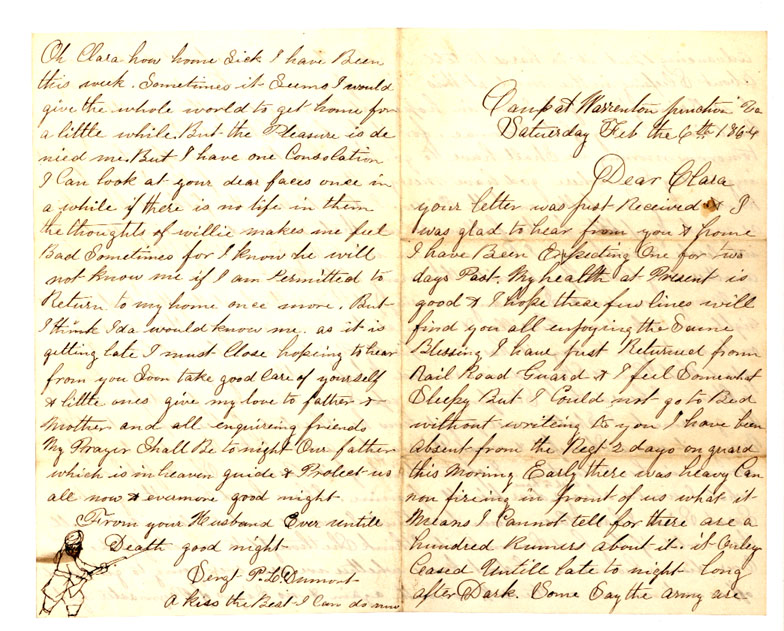 Camp at Warrenton junction Va
Saturday Feb the 6th 1864
Dear Clara
your letter was just Received & I
was glad to hear from you & frome
I have Been Expecting One for two
days Past. My health at Present is
good & I hope these few lines will
find you all enjoying the Same
Blessing I have just Returned from
Rail Road Guard & I feel Somewhat
Sleepy But I Could not go to Bed
without writeing to you I have been
absent from the Regt 2 days on guard
this Morning Early there was heavy Can
non fireing in front of us what it
Means I Cannot tell for there are a
hundred Rumers about it. it Onley
Ceased Untill late to night long
after Dark. Some Say the army are
Oh Clara how home Sick I have Been
this week. Sometimes it Seems I would
give the whole world to get home for
a little while. But the Pleasure is de
nied me. But I have one Consolation
I Can look at your dear faces once in
a while if there is no life in them
the thoughts of willie makes me feel
Bad Sometimes for I know he will
not know me if I am Permitted to
Return to my home once more. But
I think Ida would know me. as it is
getting late I must Close hopeing to hear
from you Soon take good Care of yourself
& little ones give my love to father &
Mother and all enquireing friends
My Prayer Shall Be to night Our father
which is in heaven guide & Protect us
all now & evermore good night
From your Husband Ever untill
Death good night
Sergt P. L. Dumont
A kiss the Best I Can do now